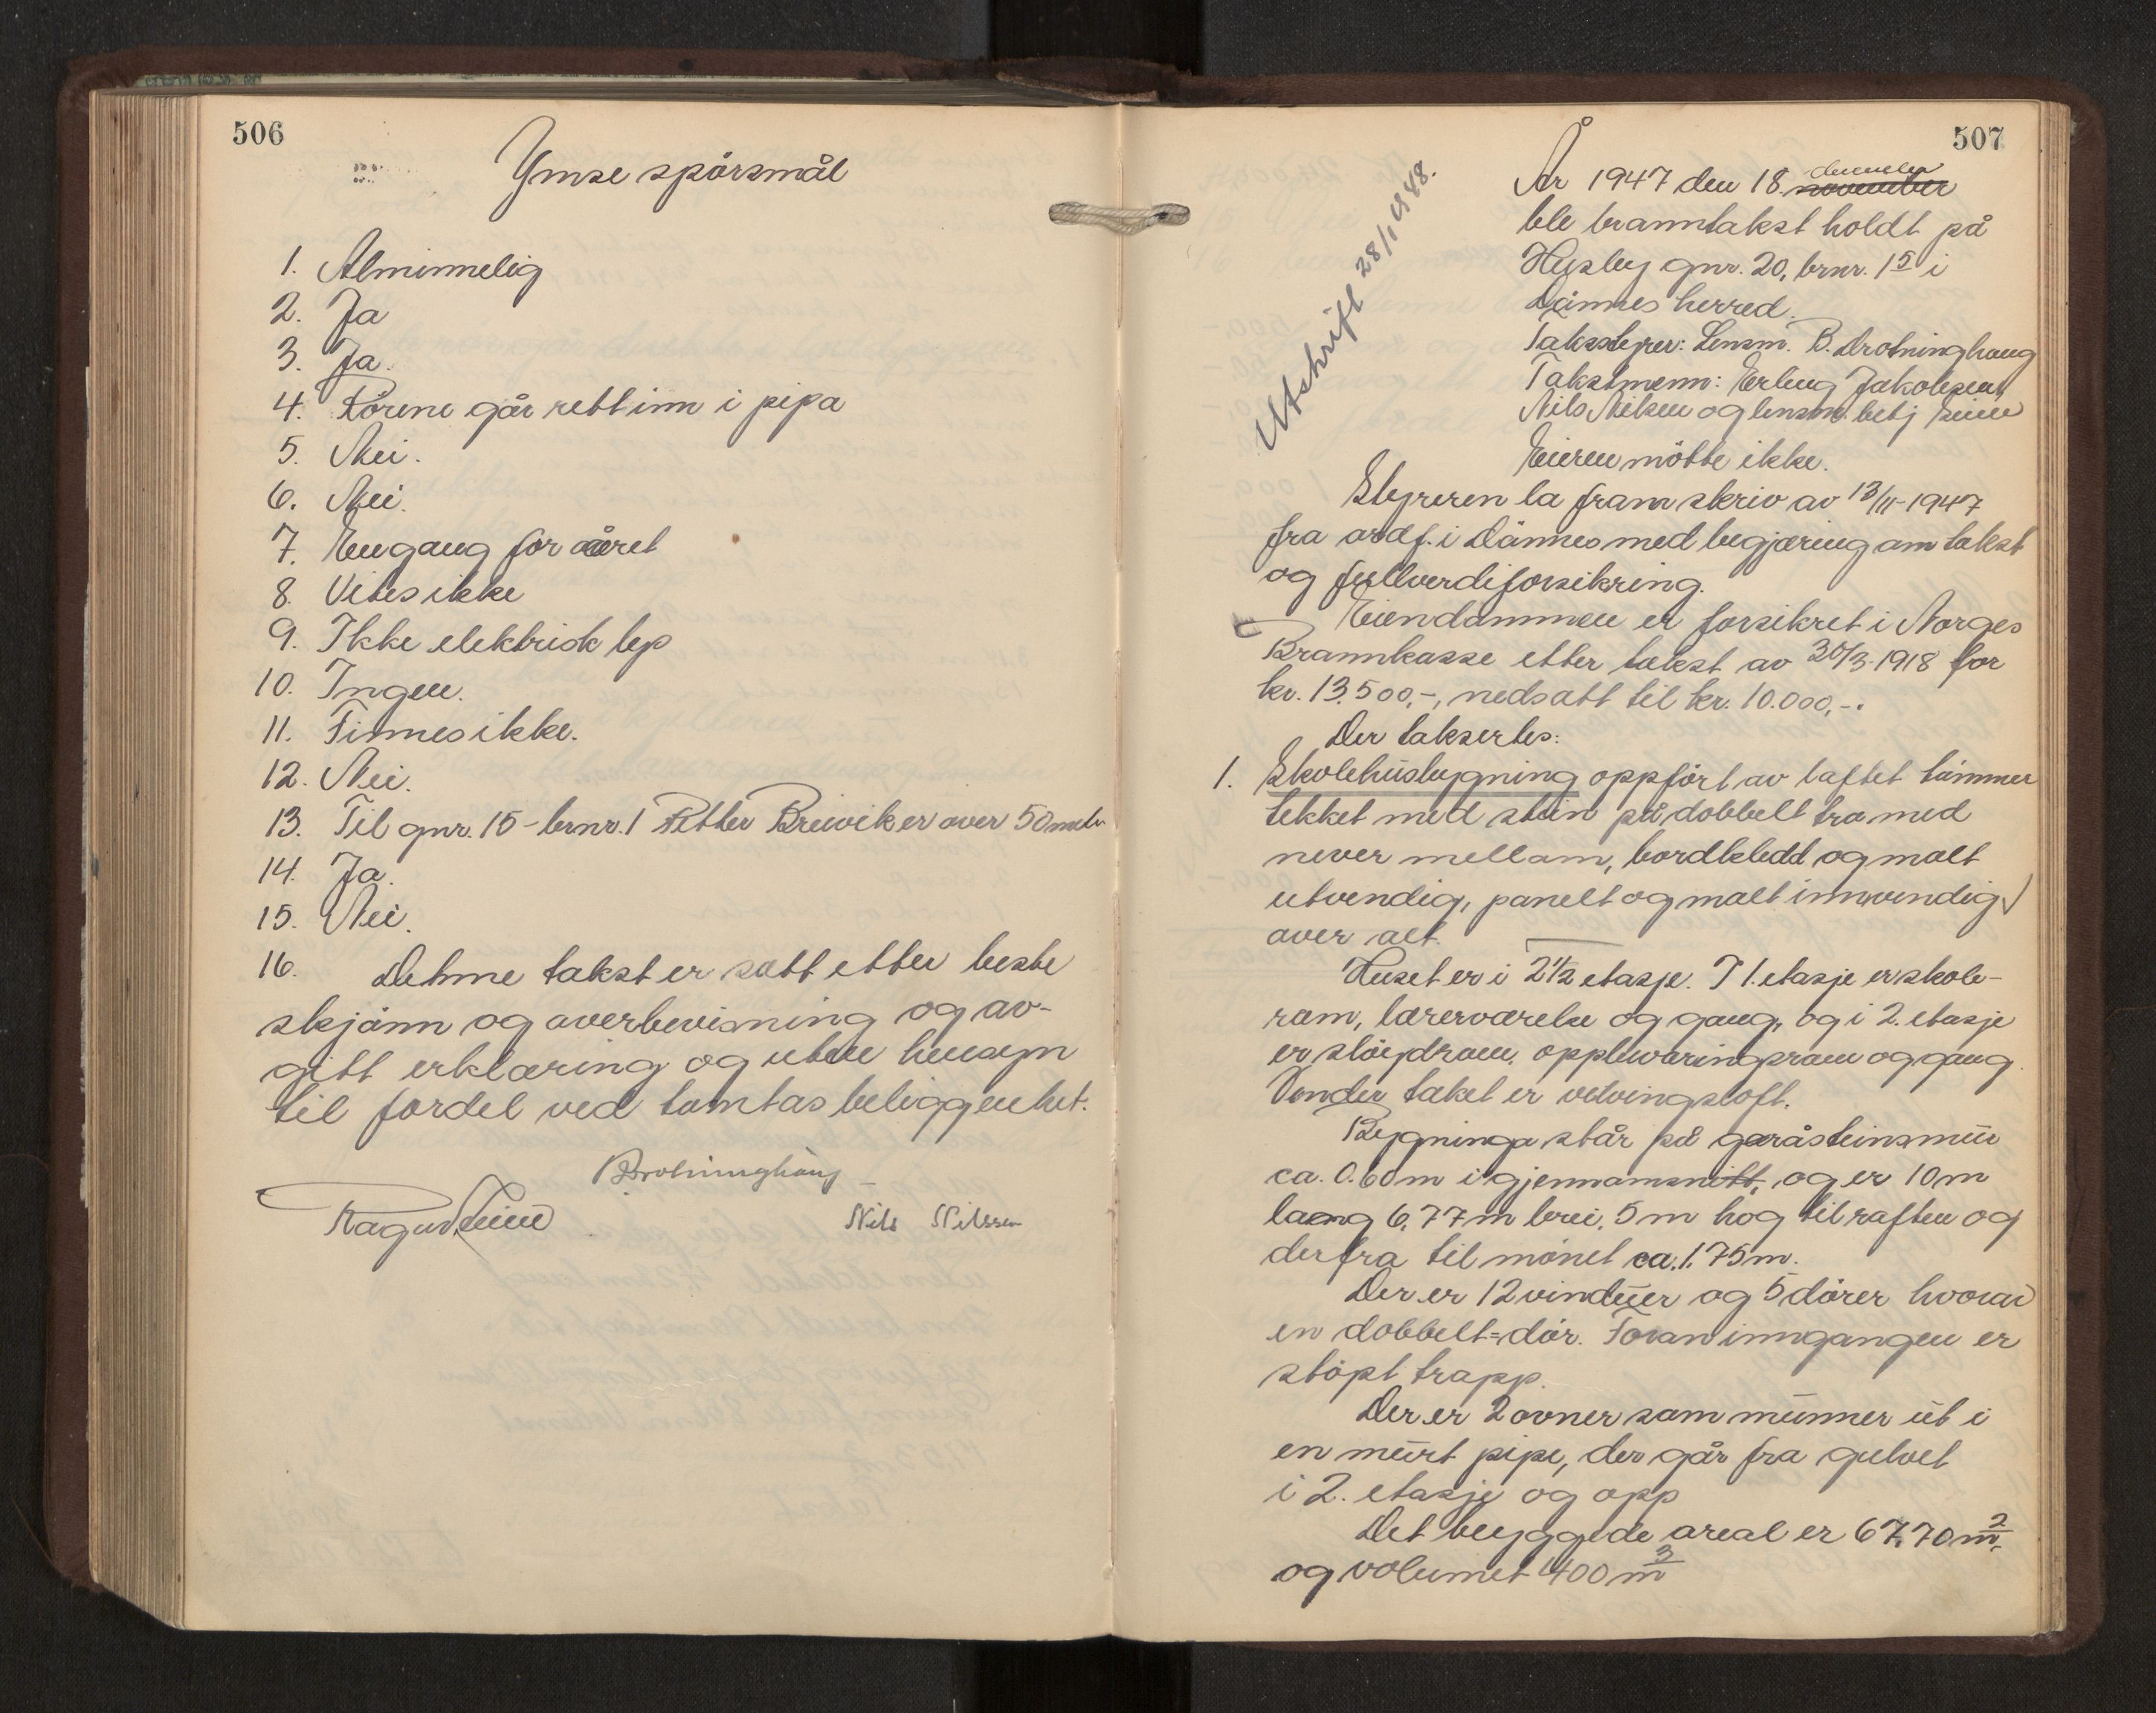 506
Ymse spörsmål
1. Alminnelig
2. Ja
3. Ja.
4. Rörene går rett inn i pipa
5. Nei.
6. Nei.
7. Engang for året
8. Vites ikke
9. Ikke elektrisk lys
10. Ingen.
11. Finnes ikke.
12. Nei.
13. Til gnr. 15 - brnr. 1 Petter Breivik er over 50 metr
14. Ja.
15. Nei.
16. Denne takst er satt etter beste
skjönn og overbevisning og av-
gitt erklæring og uten hensyn
til fordel ved tomtas beliggenhet.
B. Drotninghaug
Ragnv. Nils Nilssen
507
Utskrift 28/1 1948.
År 1947 den 18. desember november
ble branntakst holdt på
Husby gnr. 20, brnr. 15 i
Dönnes herred.
Takststyrer: Lensm. B. Drotninghaug
Takstmenn: Erling Jakobsen,
Nils Nilsen og lensm. betj
Eieren mötte ikke.
Styreren la fram skriv av 13/11-1947
fra ordf. i Dönnes med begjæring om takst
og fullverdiforsikring.
Eiendommen er forsikret i Norges
Brannkasse etter takst av 30/3-1918 for
kr. 13.500,-, nedsatt til kr. 10.000,-.
Der taksertes:
1. Skolehusbygning oppfört av laftet tömmer
tekket med stein på dobbelt tro med
never mellom, bordkledd og malt
utvendig, panelt og malt innvendig
over alt.
Huset er i 2 1/2 etasje. I 1. etasje er skole-
rom, lærerværelse og gang, og i 2. etasje
er slöydrom, oppbevaringsrom og gang.
Under taket er loft.
Bygninga står på gråsteinsmur
ca. 0.60 m i gjennomsnitt, og er 10 m
lang 6,77 m brei, 5 m hög til raften og
derfra til mönet ca. 1.75 m.
Der er 12 vinduer og 5 dörer hvorav
en dobbelt=dör. Foran inngangen er
stöpt trapp.
Der er 2 ovner som munner ut i
en murt pipe, der går fra gulvet
i 2. etasje og opp
Det byggede areal er 67.70 m2,
og volumet 400 m3